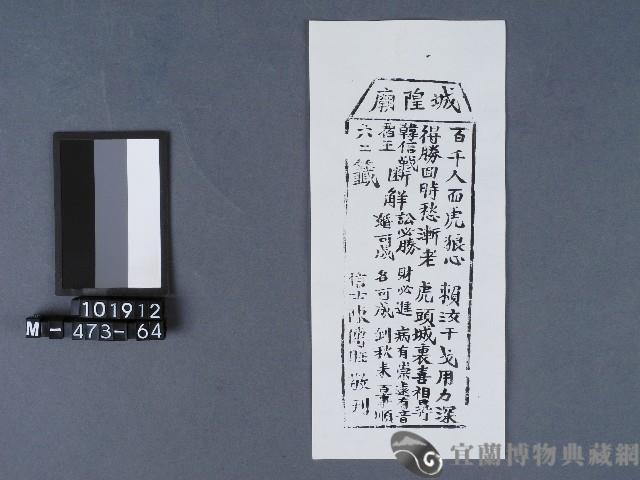 城隍廟
百千人面虎狼心 賴汝干戈用力深
得勝回時愁漸老 虎頭城裏喜相尋
韓信戰霸王
斷 訟必勝 財必進 病有崇 遠有音
解 婚可成 名可成 到秋末 百事順
六二籤
信士陳傳旺敬刊
101912
M-473-64
宜蘭博物典藏網